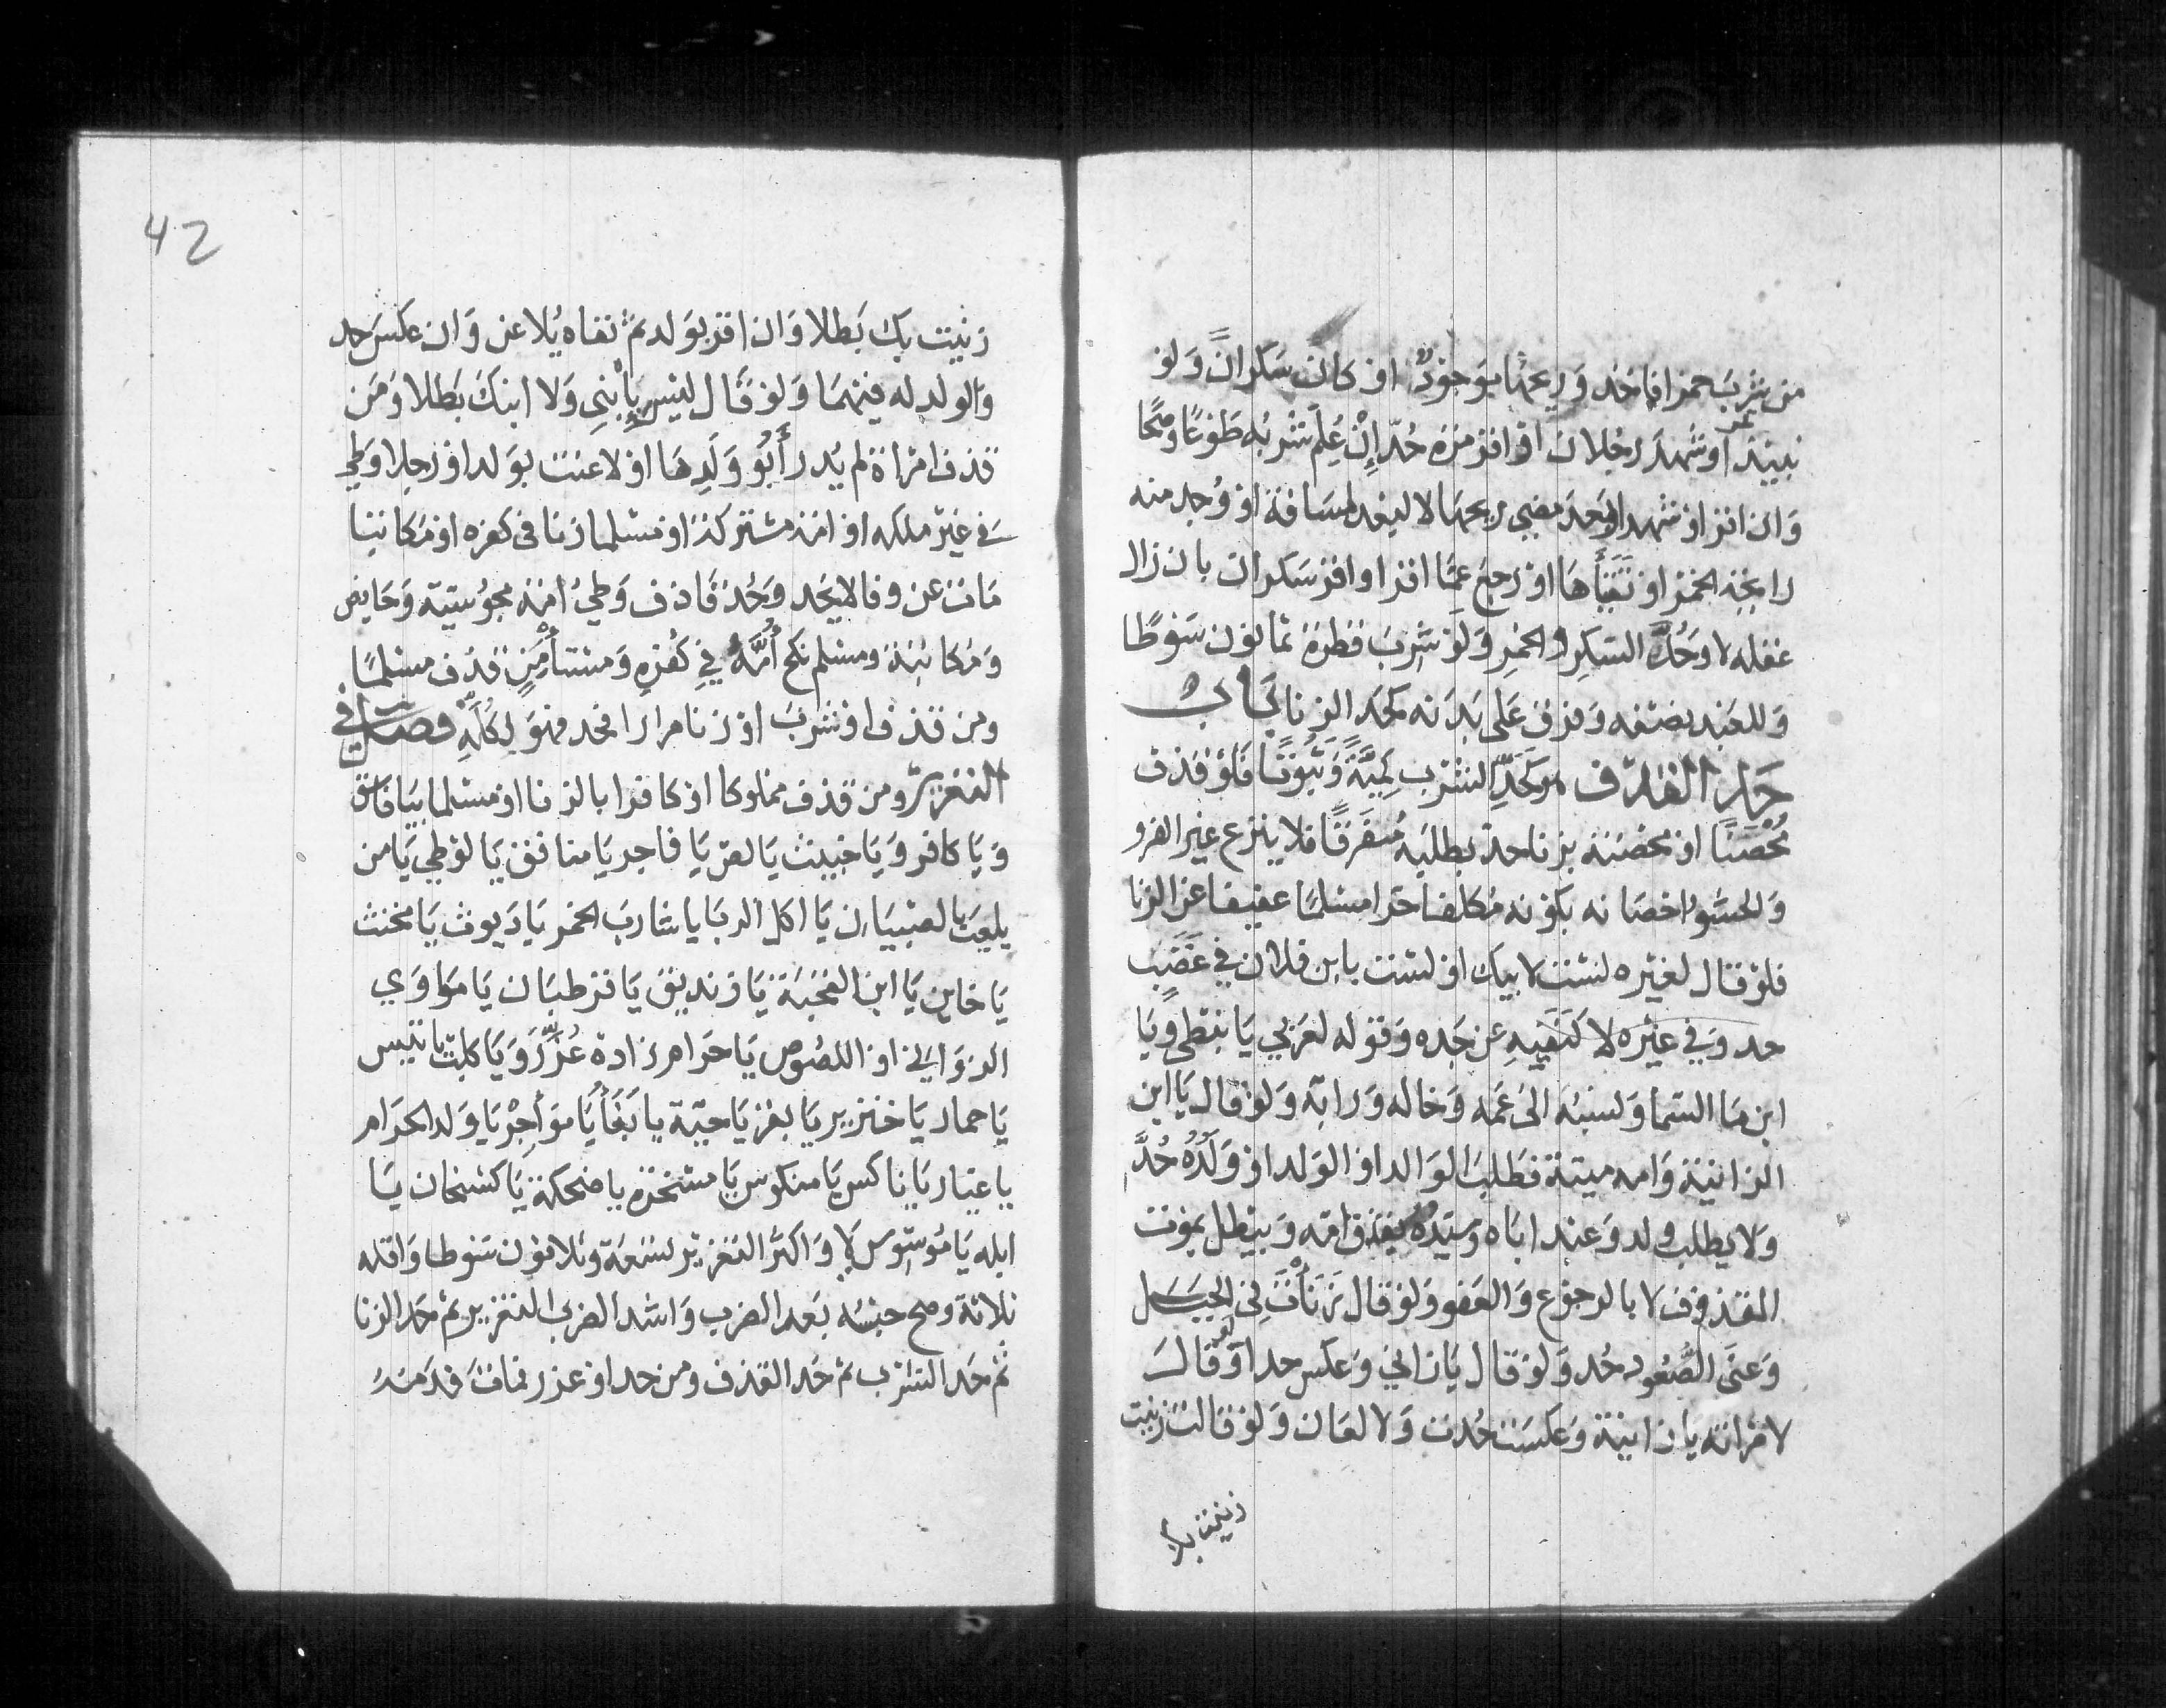 من شرب خمرا فاخذ وريحها موجود او كان سكران ولو
نبيذ تمر او شهد رجلان او اقر مرة حد ان علم شربه طوعا وصحا
وان اقر او شهدا بعد مضي ريحها لا لبعد المسافة او وجد منه
رايحة الخمر او تقيأها او رجع عما اقر او اقر سكران بان زال
عقله لا وحد السكر والخمر ولو شرب قطرة ثمانون سوطا
وللعبد نصفه وفرق على بدنه كحد الزنا باب
حد القذف هو كحد الشرب كمية وثبوتا فلو قذف
محصنا او محصنة بزنا حد بطلبه مفرقا فلا ينزع غير الفرو
والحشو واحصانه بكونه مكلفا حرا مسلما عفيفا عن الزنا
فلو قال لغيره لست لابيك او لست بابن فلان في غضب
حد وفي غيره لا كنفيه عن جده وقوله لعربي يا نبطي ويا
ابن ما السما ونسبه الى عمه وخاله ورابه ولو قال يا ابن
الزانية وامه ميتة فطلب الوالد او الولد او ولده حد
ولا يطلب ولد وعبد اباه وسيده بقذف امه ويبطل بموت
المقذوف لا بالرجوع والعفو ولو قال زنأت في الجبل
وعنى الصعود حد ولو قال يا زاني وعكس حدا ولو قال
لامراته يا زانية وعكست حدت ولا لعان ولو قالت زنيت
زنيت بك
42
زنيت بك بطلا وان اقر بولد ثم نفاه يلاعن وان عكس حد
والولد له فيهما ولو قال ليس بابني ولا ابنك بطلا ومن
قذف امراة لم يدر أبو ولدها او لاعنت بولد او رجلا وطي
في غير ملكه او امة مشتركة او مسلما زنا في كفره او مكاتبا
مات عن وفا لا يحد وحد قاذف وطي امة مجوسية وحايض
ومكاتبة ومسلم نكح أمه في كفره ومستأمن قذف مسلما
ومن قذف او شرب او زنا مرارا فحد فهو لكله فصل في
التعزير ومن قذف مملوكا او كافرا بالزنا او مسلما بيا فاسق
ويا كافر ويا خبيث يا لص يا فاجر يا منافق يا لوطي يا من
يلعب بالصبيان يا اكل الربا يا شارب الخمر يا ديوث يا مخنث
يا خاين يا ابن القحبة يا زنديق يا قرطبان يا ماوي
الزواني او اللصوص يا حرام زادة عزر ويا كلب يا تيس
يا حمار يا خنزير يا بقر يا حية يا بغا يا مؤاجر يا ولد الحرام
يا عيار يا ناكس يا منكوس يا مسخرة يا ضحكة يا كشخان يا
ابله يا موسوس لا واكثر التعزير تسعة وثلاثون سوطا واقله
ثلاثة وصح حبسه بعد الضرب واشد الضرب التعزير ثم حد الزنا
ثم حد الشرب ثم حد القذف ومن حد او عزر فمات فدمه